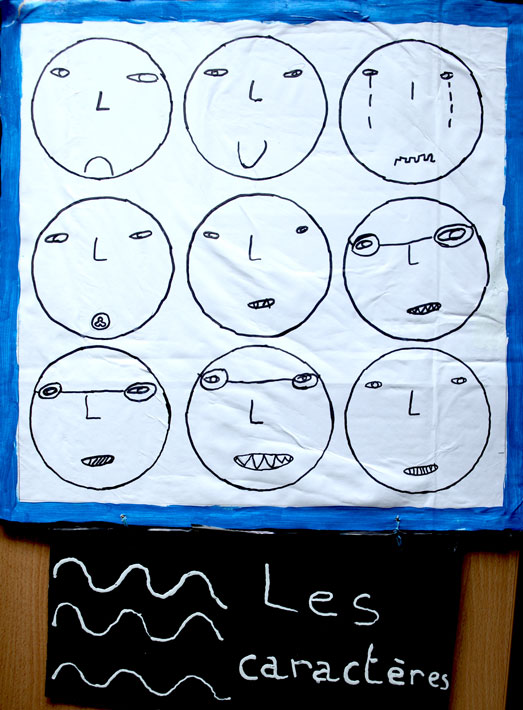 Les
caractères